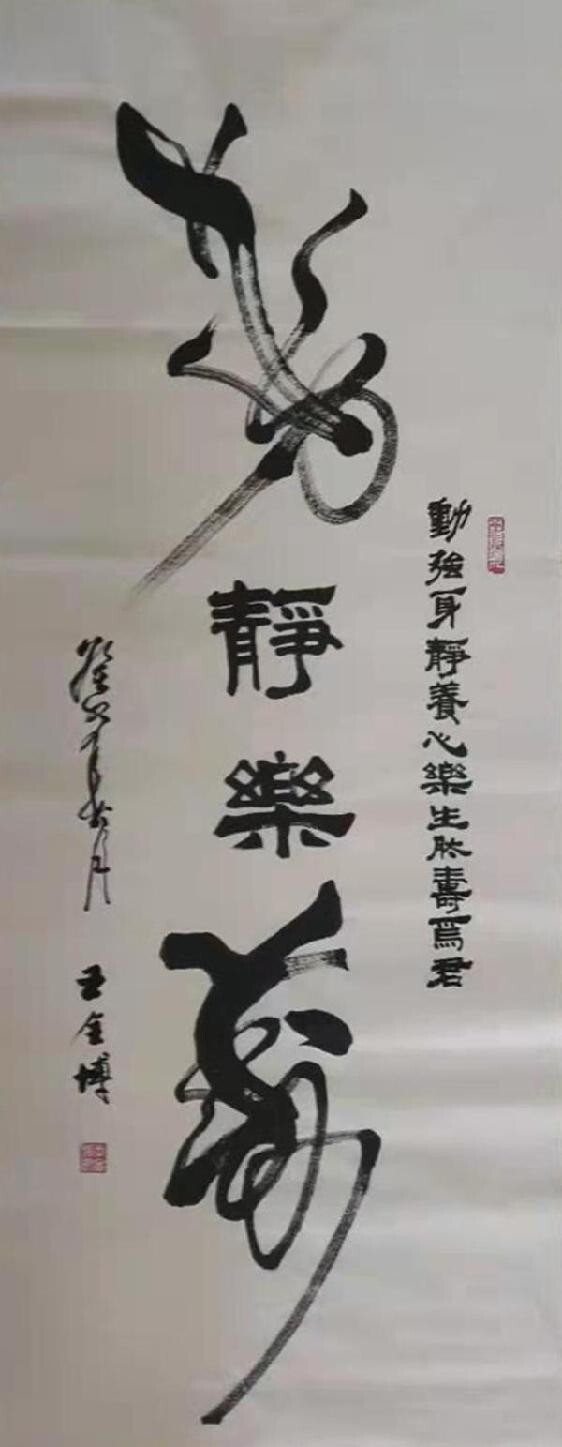 動強身靜養心樂生陶壽爲君
動靜樂壽
王金博